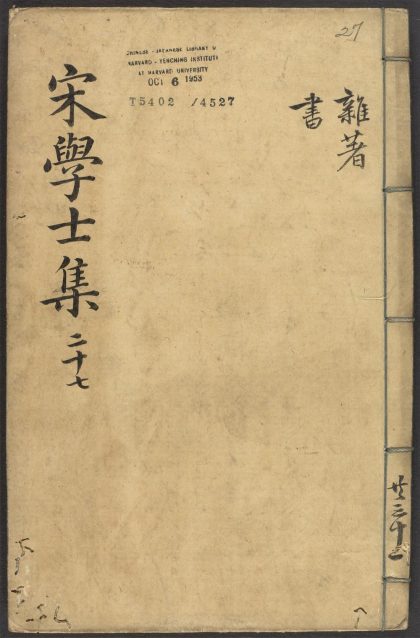 27
CHINESE - JAPANESE LIBRARY O
HARVARD - YENCHING INSTITUTE
AT HARVARD UNIVERSITY
OCT 6 1953
T5402 /4527
雜著
書
宋學士集 二十七